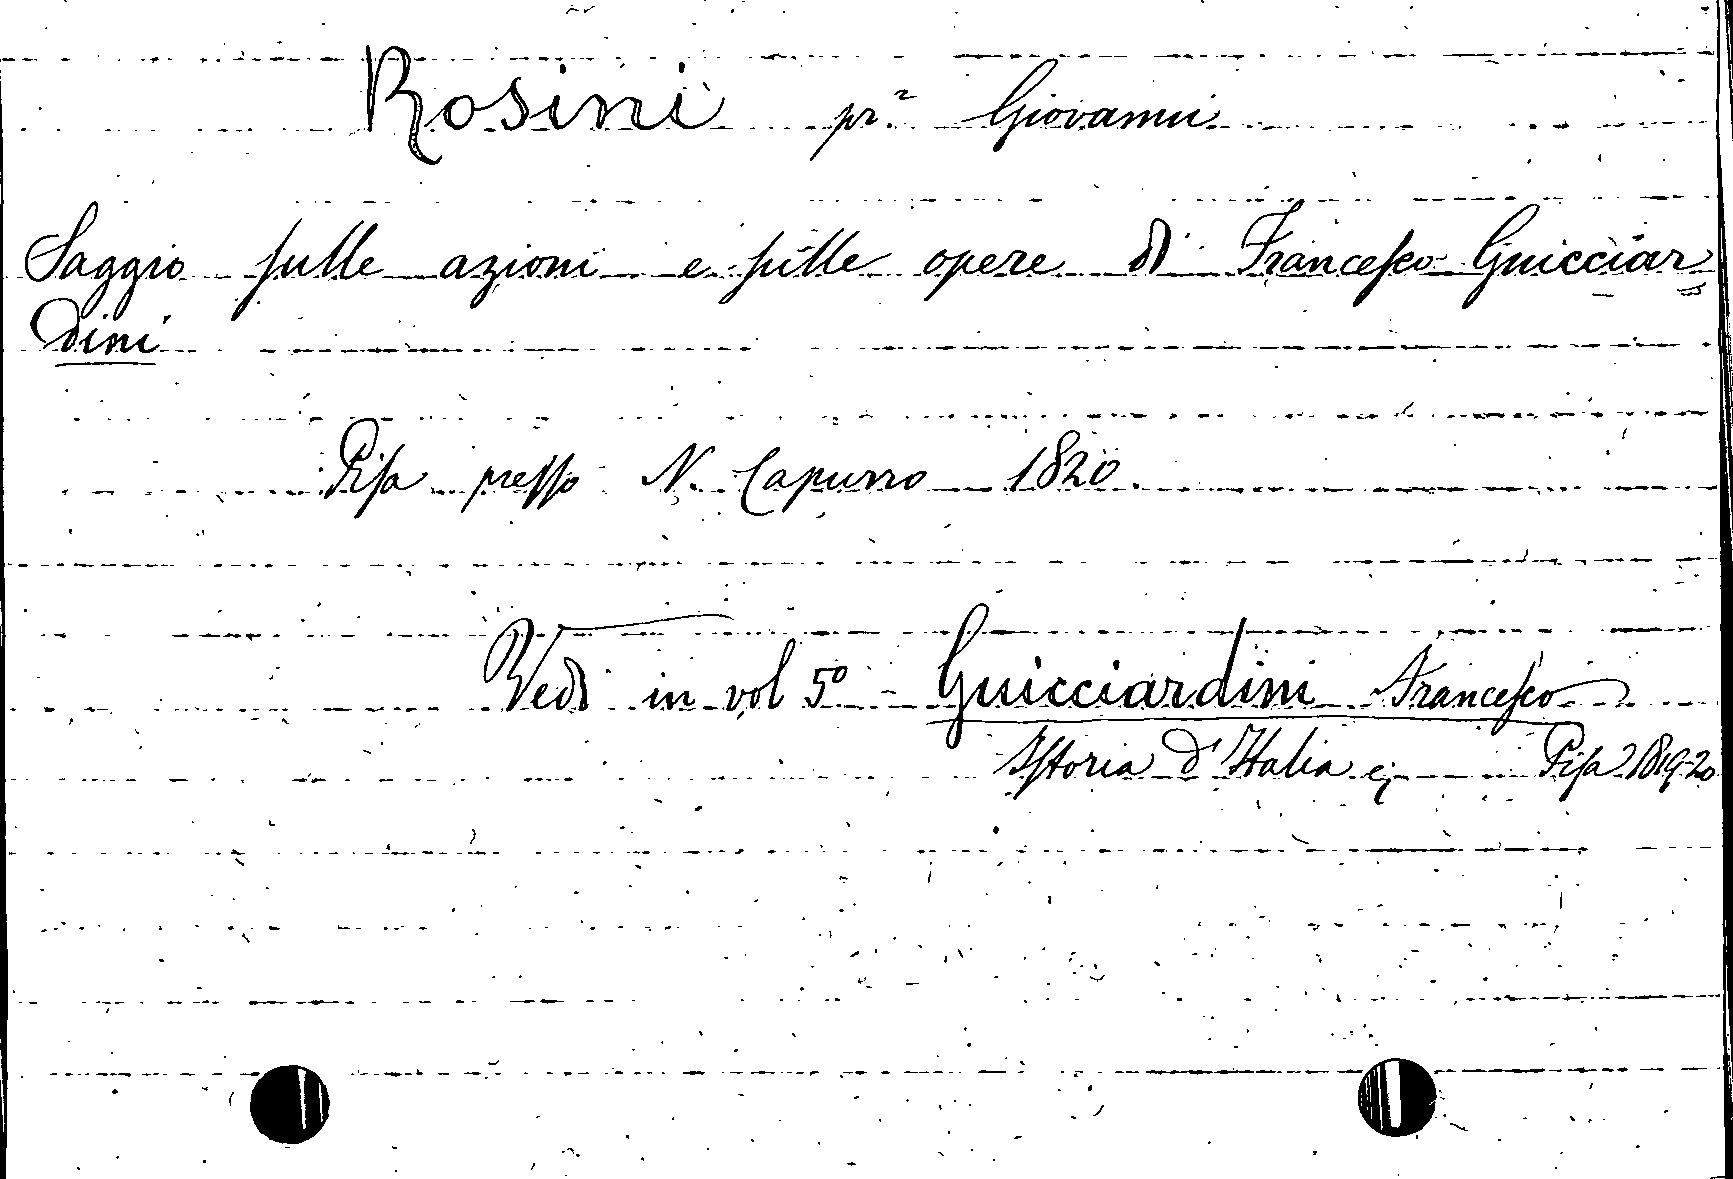 Rosini pr.ᵉ Giovanni
Saggio sulle azioni e sulle opere di Francesco Guicciar
dini
Pisa presso N. Capurro 1820.
Vedi in vol 5º - Guicciardini Francesco
Istoria d'Italia Pisa 1819-20